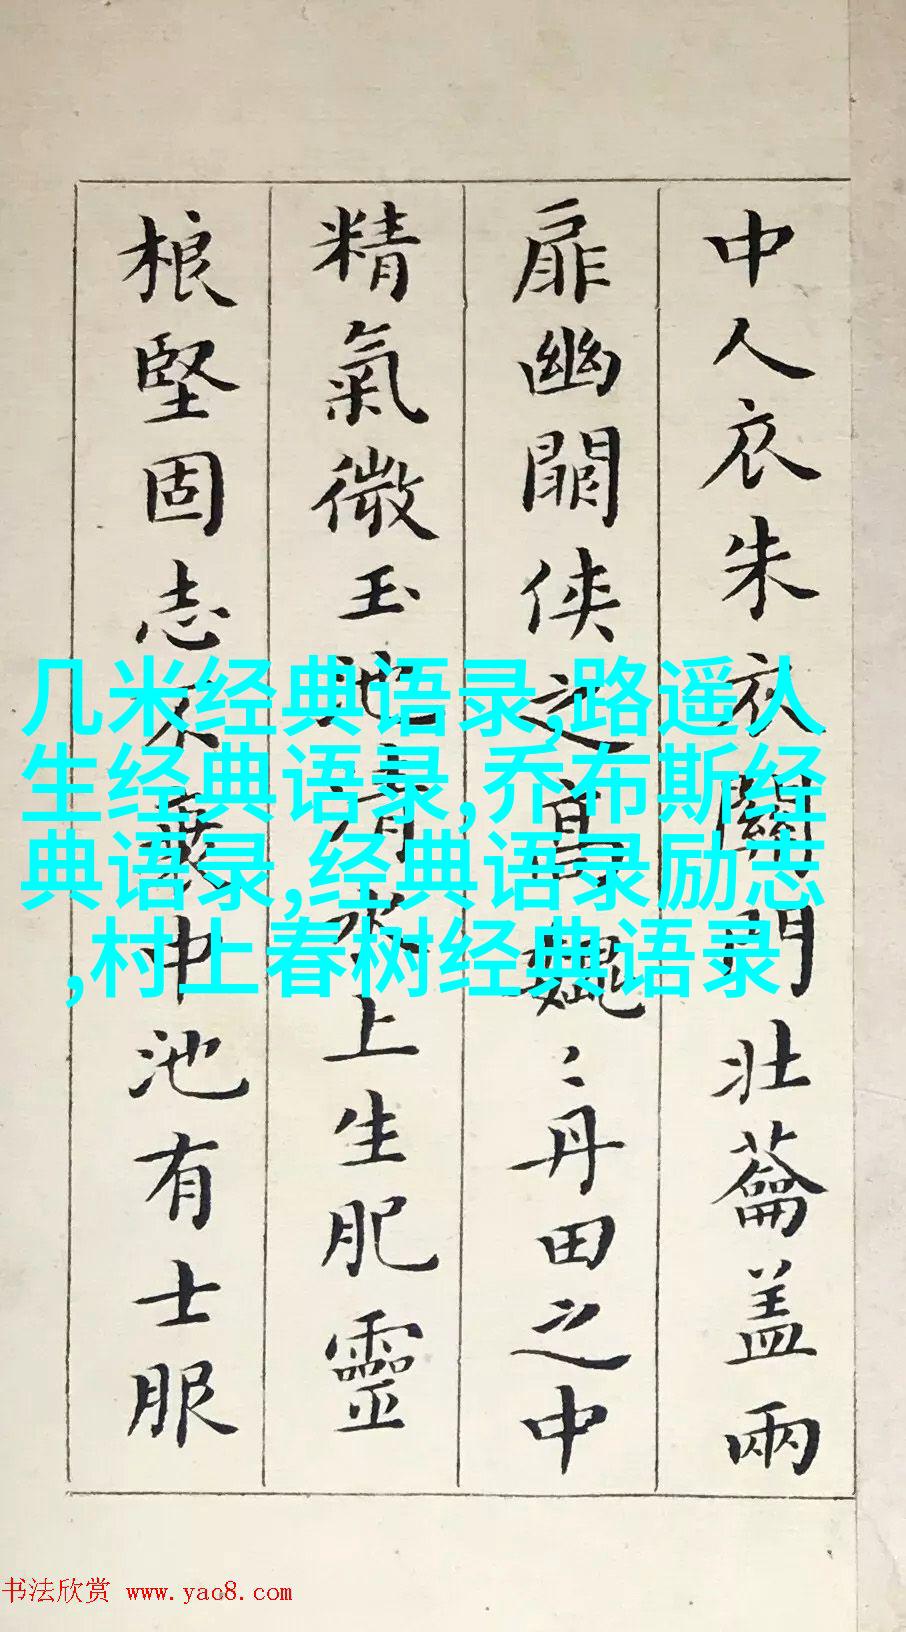 中人衣朱衣關門壯蘥盖兩
扉幽闕侠之高巍〻丹田之中
精氣微玉池清水上生肥靈
根堅固志不衰中池有士服
几米经典语录,路遥人
生经典语录,乔布斯经
典语录,经典语录励志
,村上春树经典语录
书法欣赏 www.yac8.com